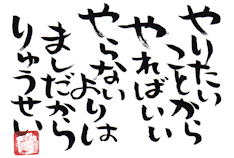 やりたい
ことから
やればいい
やらない
よりは
ましだから
りゅうせい